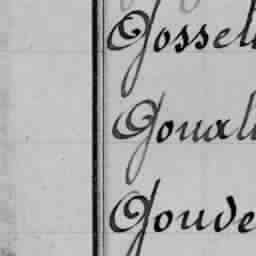 Gossel
Goual
Gouve